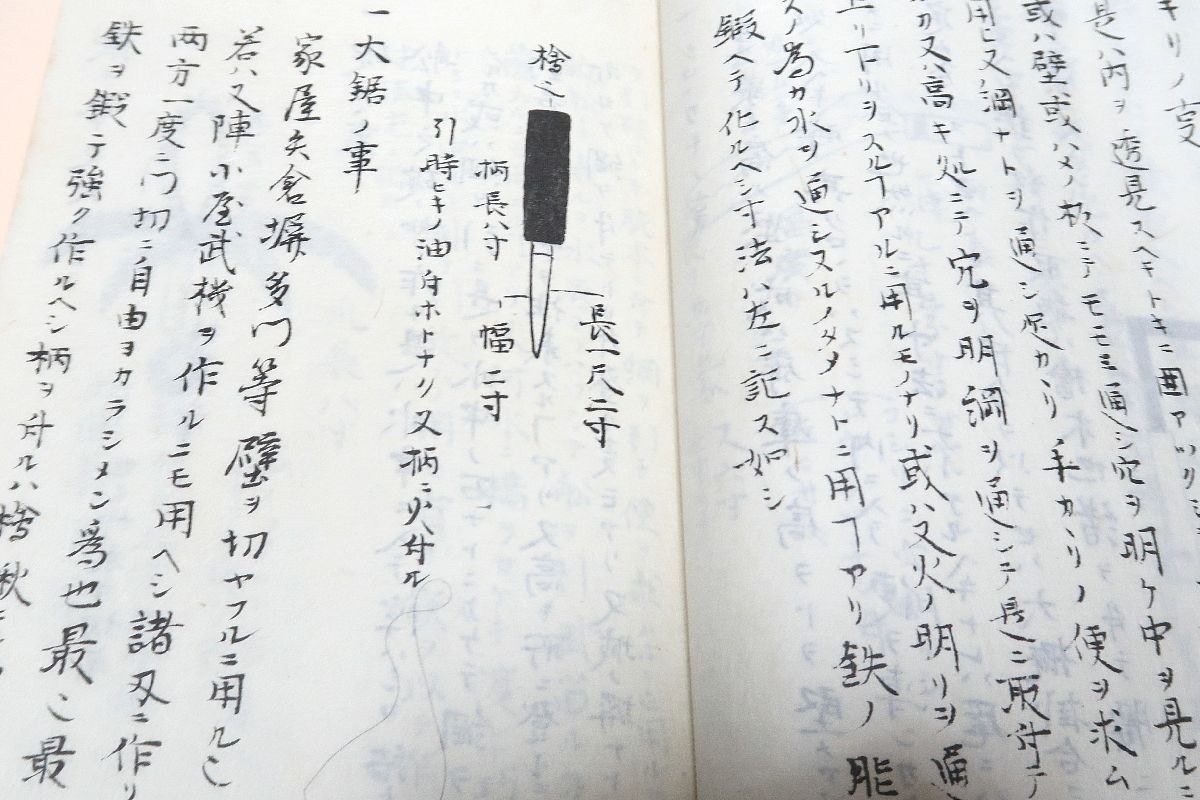 キリノ
是ハ内ヲ透見スヘキトキニ囲アツク
或ハ壁或ハハメノ板ニテモモミ通シ穴ヲ明ケ中ヲ見ルニ
用ヒ又綱ナトヲ通シ足カヽリ手カヽリノ便ヲ求ム
又ハ高キ処ニテ穴ヲ明綱ヲ通シテ長ニ取付テ
上リ下リヲスルヿアルニ用ルモノナリ或ハ又火ノ明リヲ通
為カ水ヲ通シヌルノタメナトニ用ヿアリ鉄ノ能
鍛ヘテ化ルヘシ寸法ハ左ニ記ス如シ
長一尺二寸
檜之
柄長八寸
幅二寸
引時ヒキ油付ホトナリ又柄ニ穴付ル
一大鋸ノ事
家屋矢倉塀多門等壁ヲ切ヤフルニ用ル
若ハ又陣小屋武機ヲ作ルニモ用ヘシ諸刃ニ作リ
両方一度ニ切ニ自由ヨカラシメン為也最
鉄ヲ鍜テ強ク作ルヘシ柄ヲ付ルハ檜楸